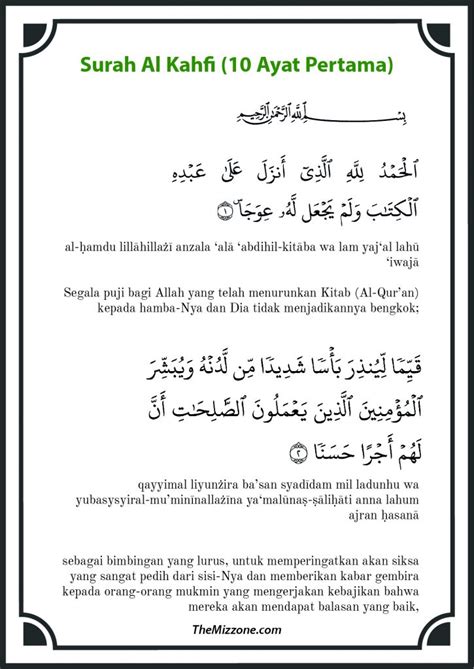 Surah Al Kahfi (10 Ayat Pertama)
بِسْمِ اللَّهِ الرَّحْمَٰنِ الرَّحِيمِ
ٱلْحَمْدُ لِلَّهِ ٱلَّذِىٓ أَنزَلَ عَلَىٰ عَبْدِهِ
ٱلْكِتَٰبَ وَلَمْ يَجْعَل لَّهُۥ عِوَجَاۜ ١
al-ḥamdu lillāhillażī anzala ‘alā ‘abdihil-kitāba wa lam yaj‘al lahū
‘iwajā
Segala puji bagi Allah yang telah menurunkan Kitab (Al-Qur’an)
kepada hamba-Nya dan Dia tidak menjadikannya bengkok;
قَيِّمًا لِّيُنذِرَ بَأْسًا شَدِيدًا مِّن لَّدُنْهُ وَيُبَشِّرَ
ٱلْمُؤْمِنِينَ ٱلَّذِينَ يَعْمَلُونَ ٱلصَّٰلِحَٰتِ أَنَّ
لَهُمْ أَجْرًا حَسَنًا ٢
qayyimal liyunżira ba’san syadīdam mil ladunhu wa
yubasysyiral-mu’minīnallażīna ya‘malūnaṣ-ṣāliḥāti anna lahum
ajran ḥasanā
sebagai bimbingan yang lurus, untuk memperingatkan akan siksa
yang sangat pedih dari sisi-Nya dan memberikan kabar gembira
kepada orang-orang mukmin yang mengerjakan kebajikan bahwa
mereka akan mendapat balasan yang baik,
TheMizzone.com